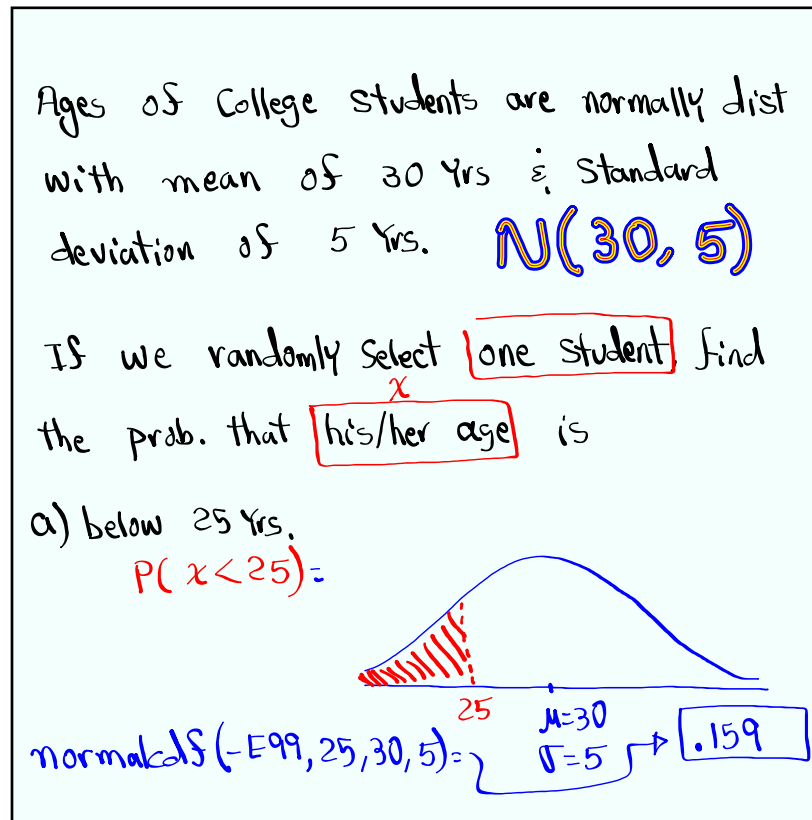 Ages of College students are normally dist
with mean of 30 Yrs & Standard
deviation of 5 Yrs. N(30, 5)
If we randomly Select one student, find
x
the prob. that his/her age is
a) below 25 Yrs.
P( x < 25) =
25 μ=30
normalcdf(-E99, 25, 30, 5)= σ=5 .159